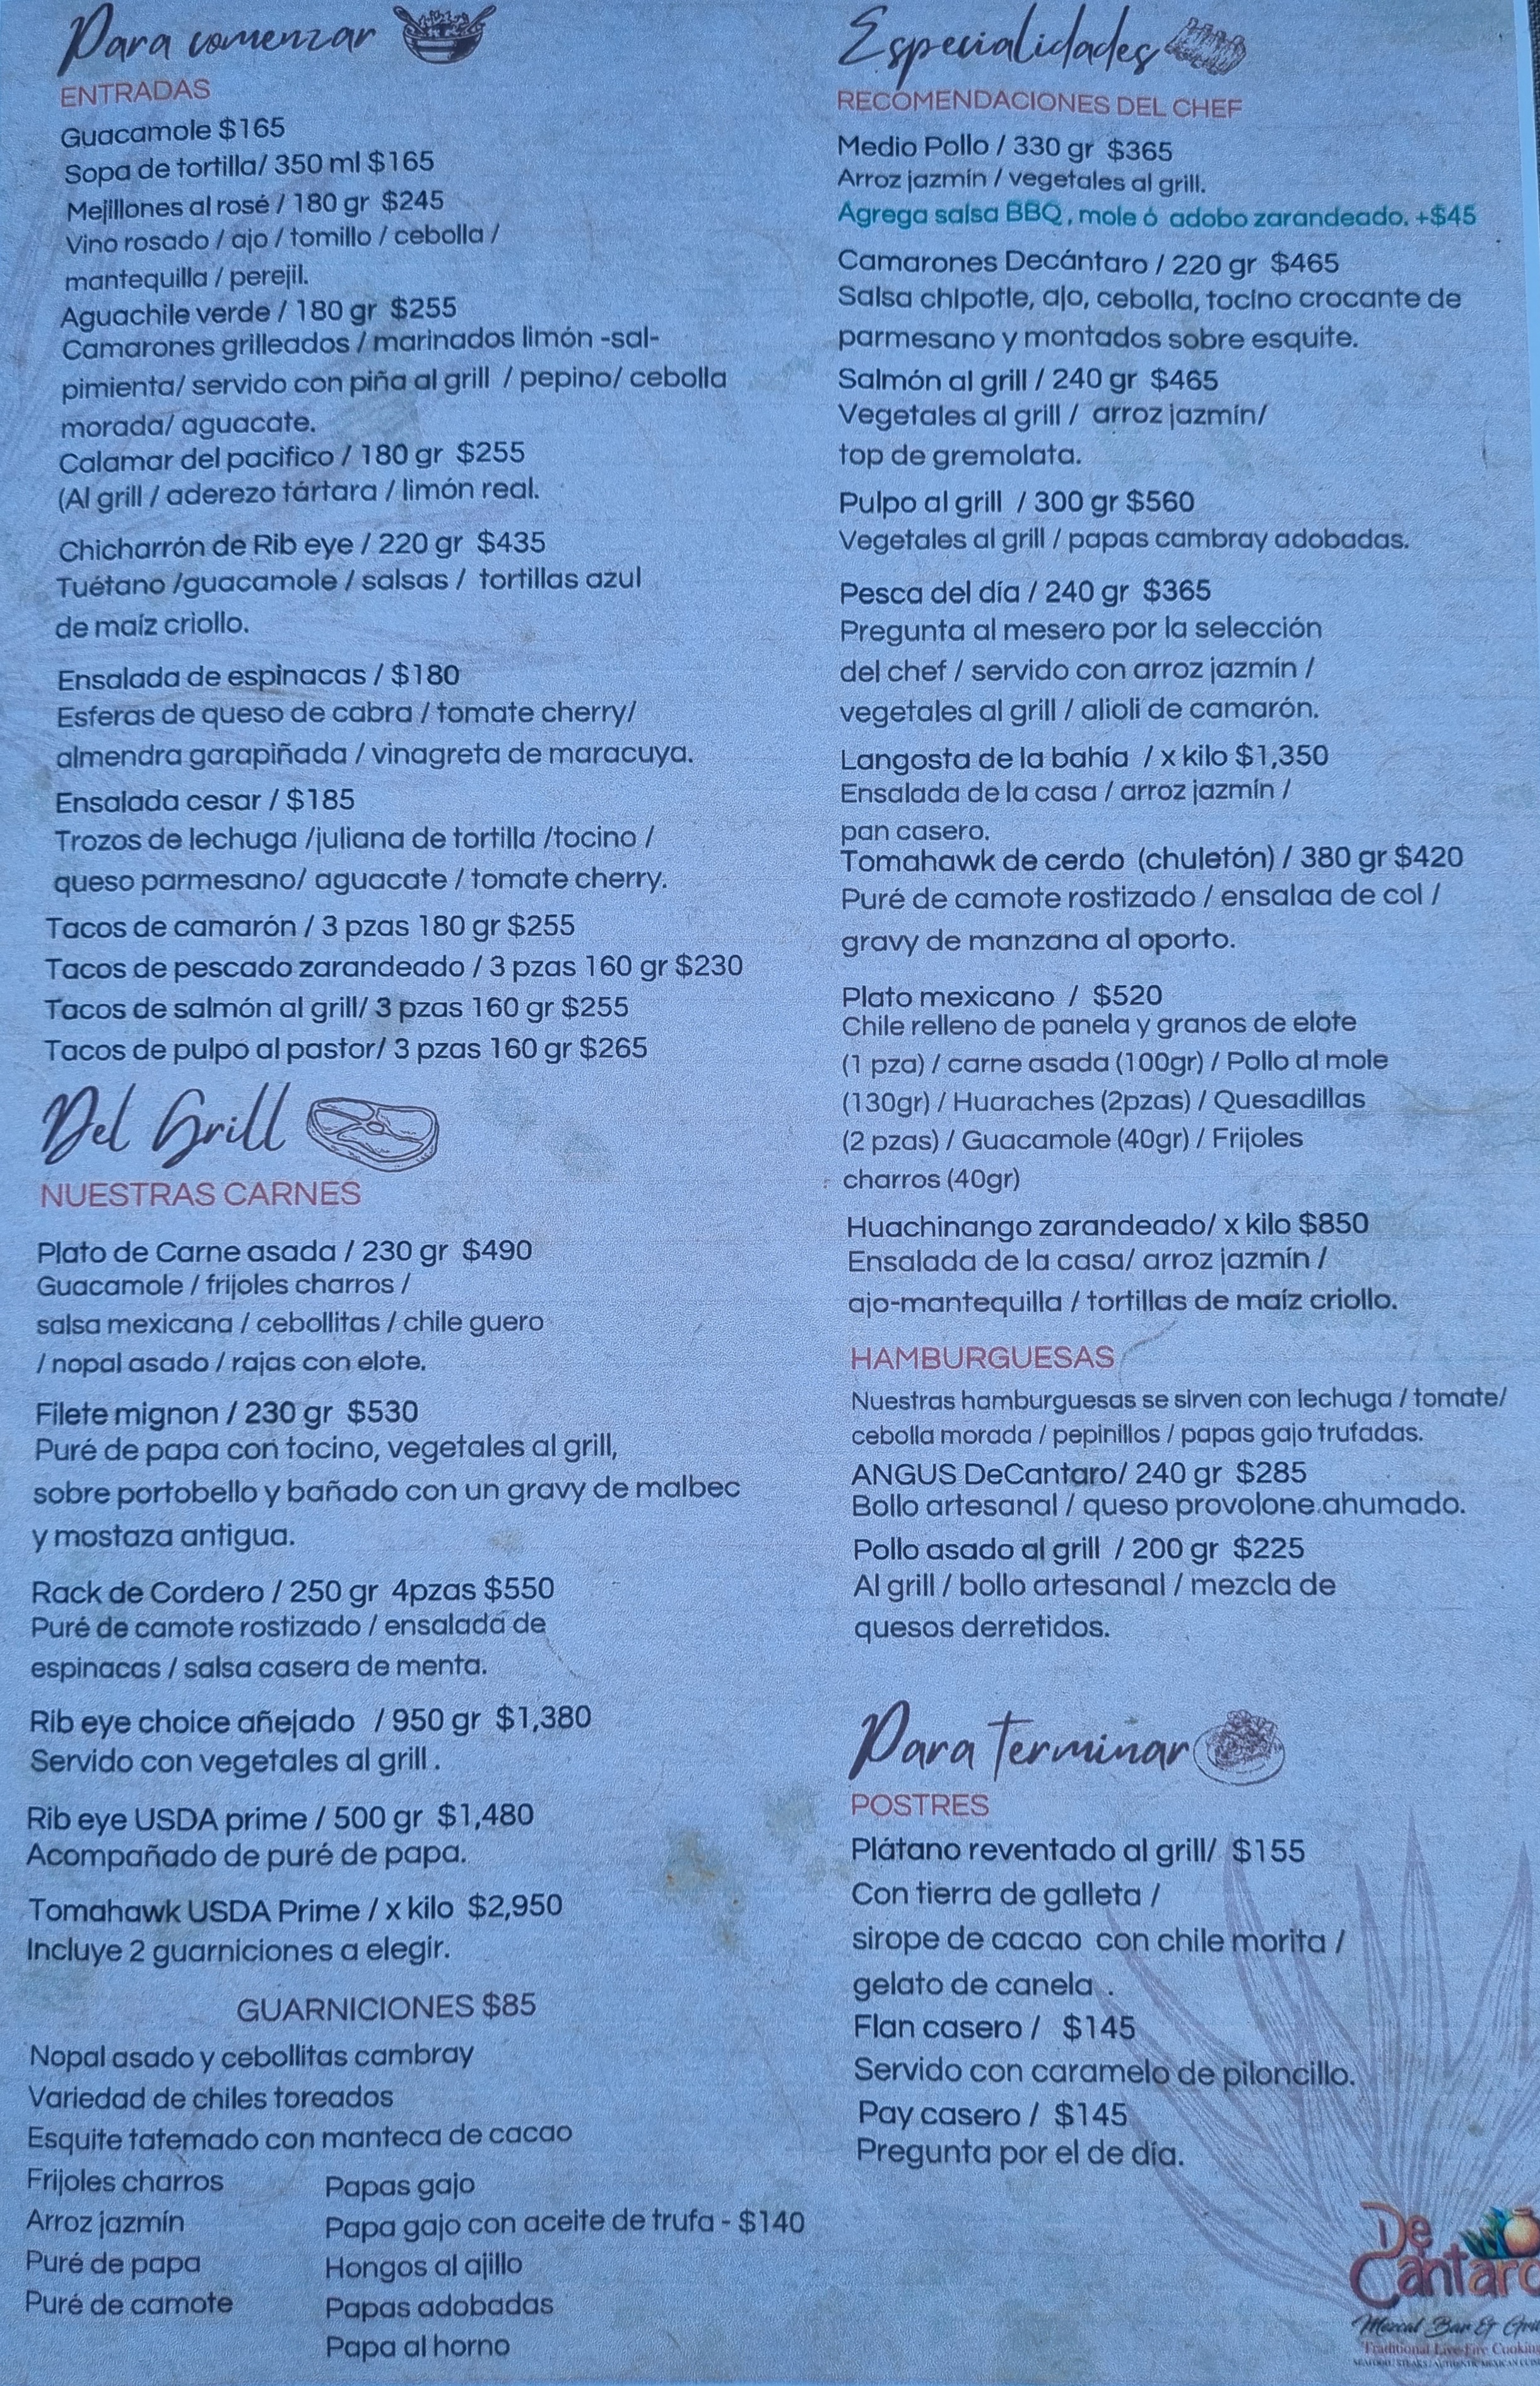 Para comenzar
ENTRADAS
Guacamole $165
Sopa de tortilla/ 350 ml $165
Mejillones al rosé / 180 gr $245
Vino rosado / ajo / tomillo / cebolla /
mantequilla / perejil.
Aguachile verde / 180 gr $255
Camarones grilleados / marinados limón -sal-
pimienta/ servido con piña al grill / pepino/ cebolla
morada/ aguacate.
Calamar del pacifico / 180 gr $255
(Al grill / aderezo tártara / limón real.
Chicharrón de Rib eye / 220 gr $435
Tuétano /guacamole / salsas / tortillas azul
de maíz criollo.
Ensalada de espinacas / $180
Esferas de queso de cabra / tomate cherry/
almendra garapiñada / vinagreta de maracuya.
Ensalada cesar / $185
Trozos de lechuga /juliana de tortilla /tocino /
queso parmesano/ aguacate / tomate cherry.
Tacos de camarón / 3 pzas 180 gr $255
Tacos de pescado zarandeado / 3 pzas 160 gr $230
Tacos de salmón al grill/ 3 pzas 160 gr $255
Tacos de pulpo al pastor/ 3 pzas 160 gr $265
Del Grill
NUESTRAS CARNES
Plato de Carne asada / 230 gr $490
Guacamole / frijoles charros /
salsa mexicana / cebollitas / chile guero
/ nopal asado / rajas con elote.
Filete mignon / 230 gr $530
Puré de papa con tocino, vegetales al grill,
sobre portobello y bañado con un gravy de malbec
y mostaza antigua.
Rack de Cordero / 250 gr 4pzas $550
Puré de camote rostizado / ensalada de
espinacas / salsa casera de menta.
Rib eye choice añejado / 950 gr $1,380
Servido con vegetales al grill .
Rib eye USDA prime / 500 gr $1,480
Acompañado de puré de papa.
Tomahawk USDA Prime / x kilo $2,950
Incluye 2 guarniciones a elegir.
GUARNICIONES $85
Nopal asado y cebollitas cambray
Variedad de chiles toreados
Esquite tatemado con manteca de cacao
Frijoles charros
Arroz jazmín
Puré de papa
Puré de camote
Papas gajo
Papa gajo con aceite de trufa - $140
Hongos al ajillo
Papas adobadas
Papa al horno
Especialidades
RECOMENDACIONES DEL CHEF
Medio Pollo / 330 gr $365
Arroz jazmín / vegetales al grill.
Agrega salsa BBQ , mole ó adobo zarandeado. +$45
Camarones Decántaro / 220 gr $465
Salsa chipotle, ajo, cebolla, tocino crocante de
parmesano y montados sobre esquite.
Salmón al grill / 240 gr $465
Vegetales al grill / arroz jazmín/
top de gremolata.
Pulpo al grill / 300 gr $560
Vegetales al grill / papas cambray adobadas.
Pesca del día / 240 gr $365
Pregunta al mesero por la selección
del chef / servido con arroz jazmín /
vegetales al grill / alioli de camarón.
Langosta de la bahía / x kilo $1,350
Ensalada de la casa / arroz jazmín /
pan casero.
Tomahawk de cerdo (chuletón) / 380 gr $420
Puré de camote rostizado / ensalaa de col /
gravy de manzana al oporto.
Plato mexicano / $520
Chile relleno de panela y granos de elote
(1 pza) / carne asada (100gr) / Pollo al mole
(130gr) / Huaraches (2pzas) / Quesadillas
(2 pzas) / Guacamole (40gr) / Frijoles
charros (40gr)
Huachinango zarandeado/ x kilo $850
Ensalada de la casa/ arroz jazmín /
ajo-mantequilla / tortillas de maíz criollo.
HAMBURGUESAS
Nuestras hamburguesas se sirven con lechuga / tomate/
cebolla morada / pepinillos / papas gajo trufadas.
ANGUS DeCantaro/ 240 gr $285
Bollo artesanal / queso provolone ahumado.
Pollo asado al grill / 200 gr $225
Al grill / bollo artesanal / mezcla de
quesos derretidos.
Para terminar
POSTRES
Plátano reventado al grill/ $155
Con tierra de galleta /
sirope de cacao con chile morita /
gelato de canela .
Flan casero / $145
Servido con caramelo de piloncillo.
Pay casero / $145
Pregunta por el de día.
De
Cantaro
Mezcal Bar & Grill
Traditional Live-Fire Cooking